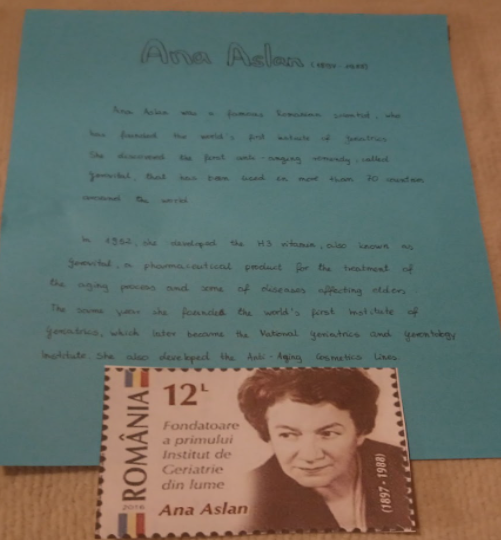 Ana Aslan (1897-1988)
Ana Aslan was a famous Romanian scientist, who
has founded the world's first institute of geriatrics
She discovered the first anti-anging remedy, called
gerovital, that has been used in more than 70 countries
around the world.
In 1952, she developed the H3 vitamin, also known as
gerovital, a pharmaceutical product for the treatment of
the aging process and some of diseases affecting olders.
The same year she founded the world's first institute of
gerontrics, which later became the National geriatrics and gerontology
Institute. She also developed the Anti-Aging Cosmetics Lines.
ROMÂNIA
2018
12L
Fondatoare
a primului
Institut de
Geriatrie
din lume
Ana Aslan
(1897-1988)